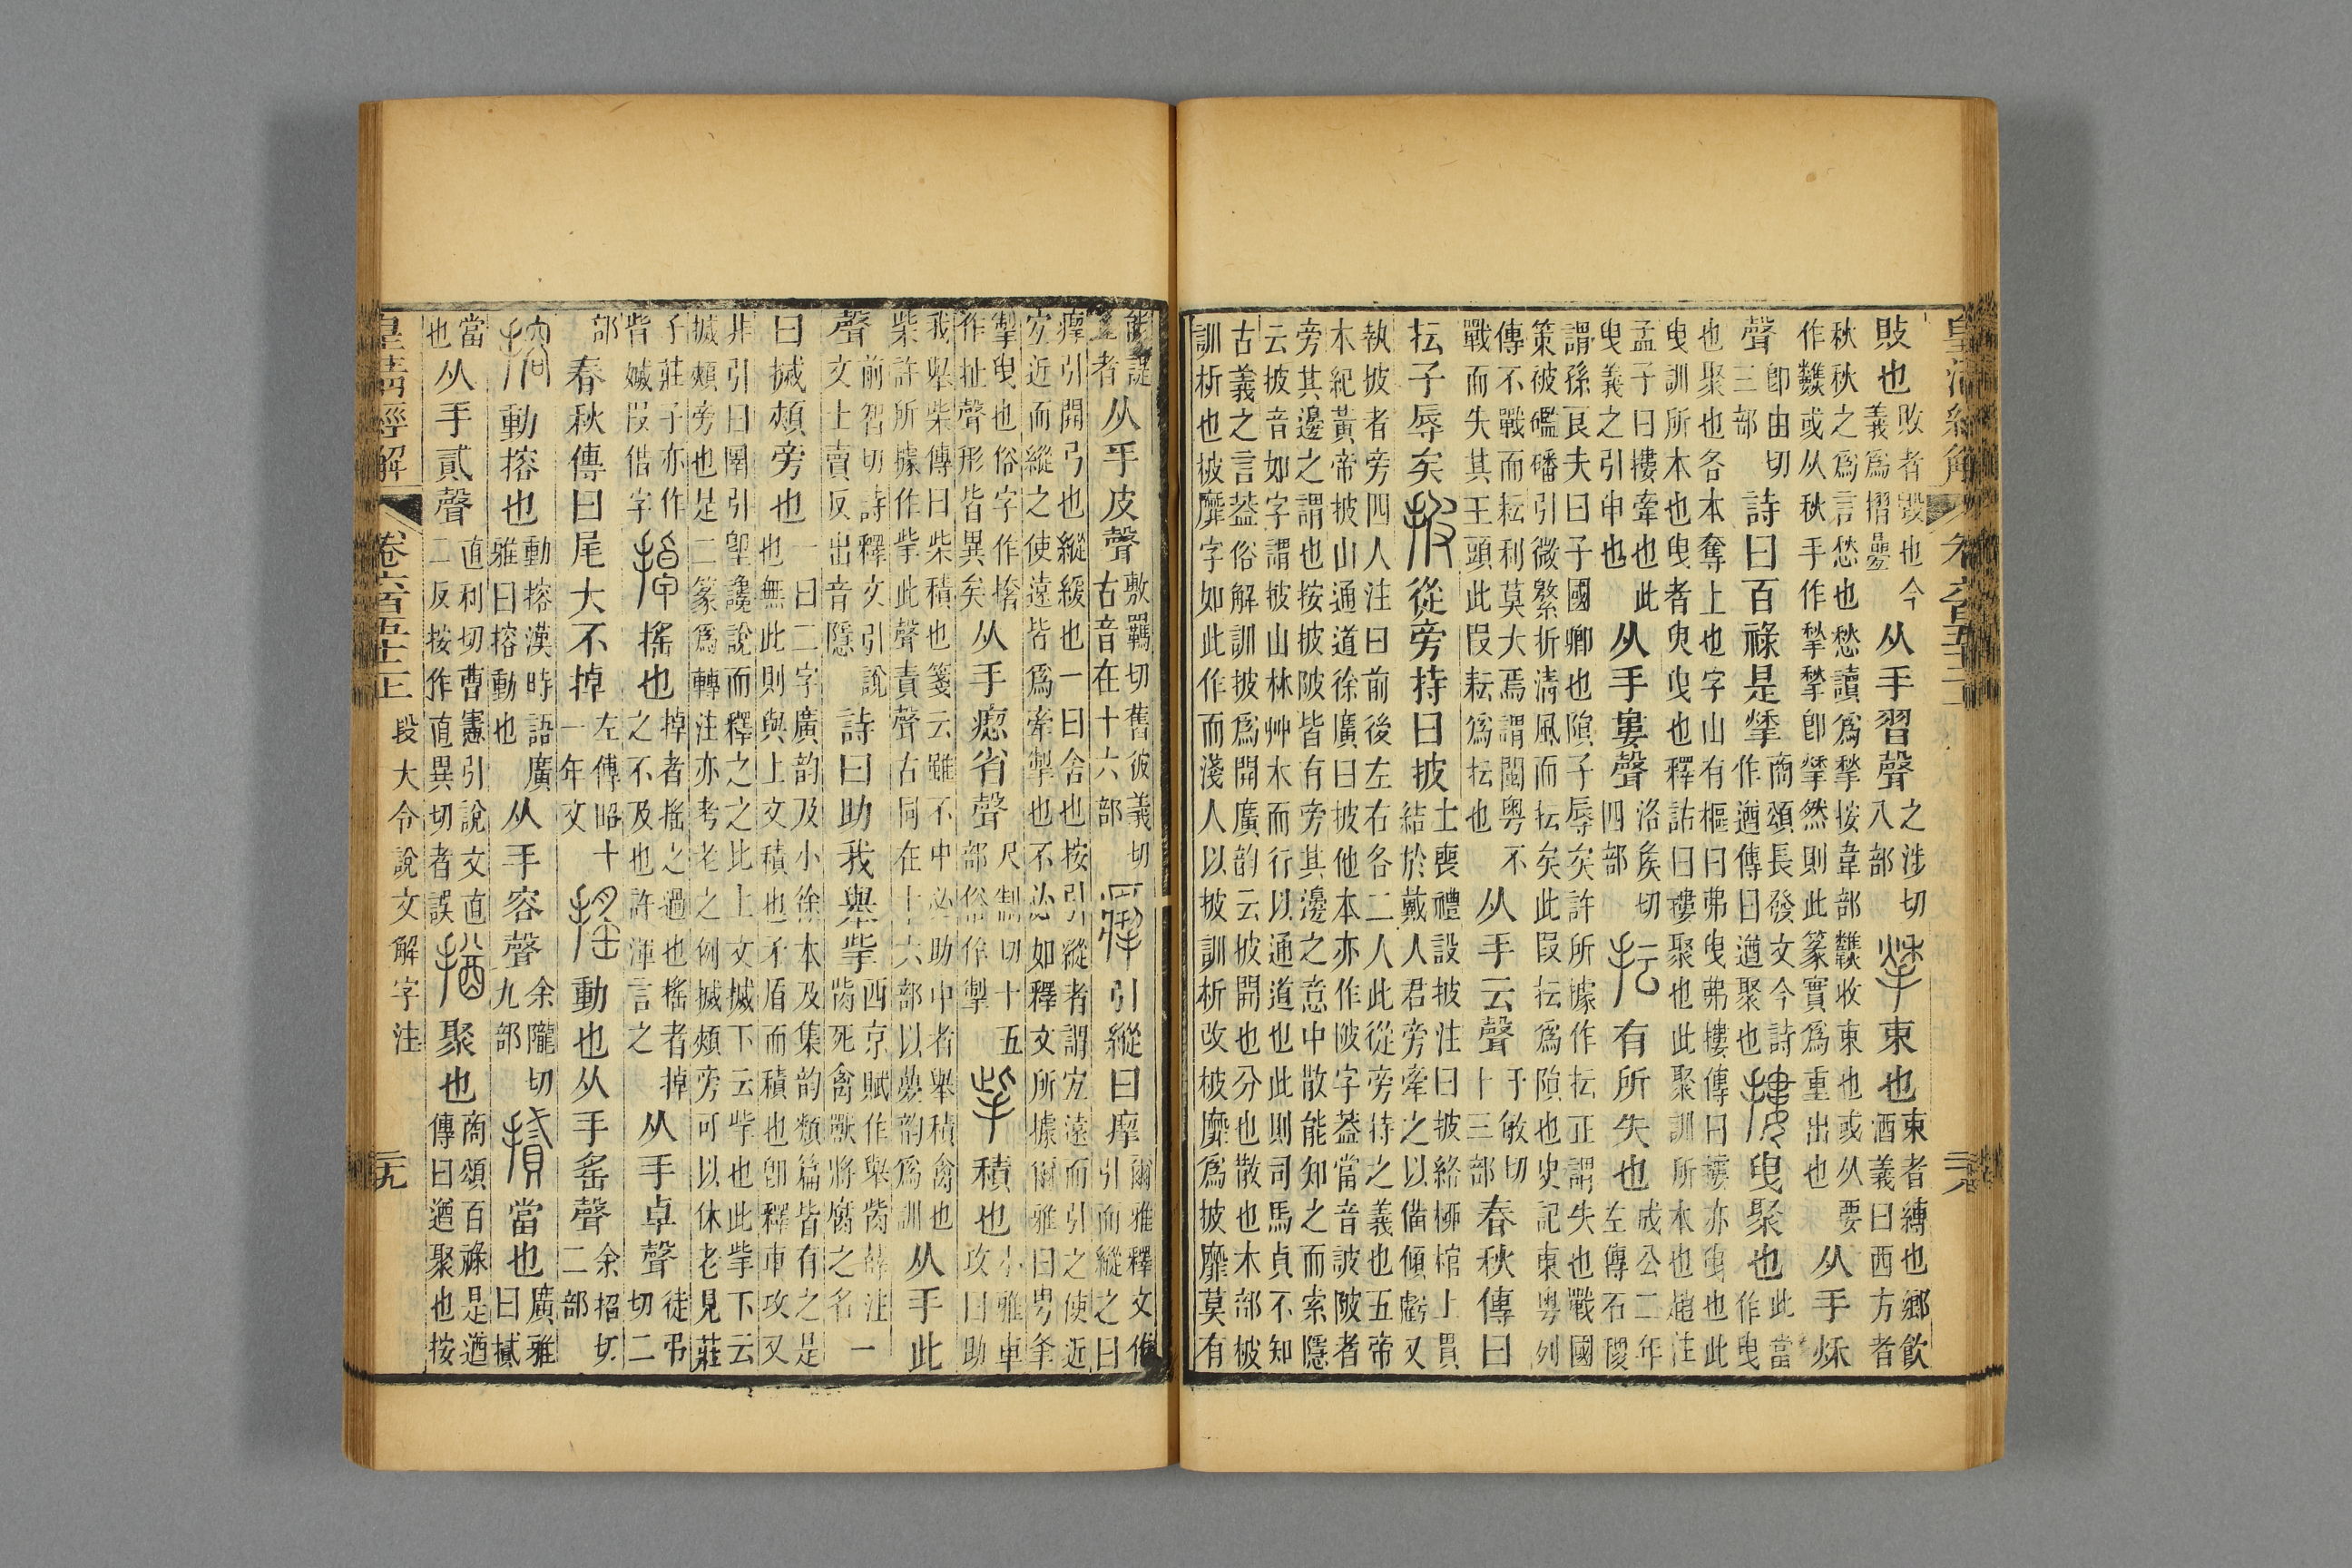 敗也敗者毀也今義爲摺疊从手習聲之涉切八部𢮃束也束者縛也鄉飲酒義曰西方者
秋秋之爲言愁也愁讀爲揫按韋部𩏷收束也或从要作𩏷或从秋手作揫揫卽𢮃然則此篆實爲重出也从手秌
聲卽由切三部詩曰百祿是𢮃商頌長發文今詩作遒傳曰遒聚也摟曳聚也此當作曳
也聚也各本奪上也字山有樞曰弗曳弗摟傳曰摟亦曳也此曳訓所本也曳者臾曳也釋詁曰摟聚也此聚訓所本也趙注
孟子曰摟牽也此曳義之引申也从手婁聲洛矦切四部抎有所失也成公二年左傳石稷
謂孫良夫曰子國卿也隕子辱矣許所據作抎正謂失也戰國策被礛磻引微繁折清風而抎矣此叚抎爲隕也史記東粵列
傳不戰而耘利莫大焉謂閩粵不戰而失其王頭此叚耘爲抎也从手云聲于敏切十三部春秋傳曰
抎子辱矣披從旁持曰披士喪禮設披注曰披絡柳棺上貫結於戴人君旁牽之以備傾虧又
執披者旁四人注曰前後左右各二人此從旁持之義也五帝本紀黃帝披山通道徐廣曰披他本亦作陂字葢當音詖陂者
旁其邊之謂也按披陂皆有旁其邊之意中散能知之而索隱云披音如字謂披山林艸木而行以通道也此則司馬貞不知
古義之言葢俗解訓披爲開廣韵云披開也分也散也木部柀訓析也柀靡字如此作而淺人以披訓析改柀靡爲披靡莫有
能諟正者从手皮聲敷羈切舊彼義切古音在十六部引縱曰𢊁爾雅釋文作引而縱之曰
𢊁引開弓也縱緩也一曰舍也按引縱者謂宐遠而引之使近宐近而縱之使遠皆爲牽掣也不必如釋文所據爾雅曰甹夆
掣曳也俗字作撦作扯聲形皆異矣从手瘛省聲尺制切十五部俗作掣㧘積也小雅車攻曰助
我舉柴傳曰柴積也箋云雖不中必助中者舉積禽也柴許所據作㧘此聲責聲古同在十六部以疊韵爲訓从手此
聲前智切詩釋文引說文士賣反出音隱詩曰助我舉㧘西京賦作舉胔薛注胔死禽獸將腐之名一
曰搣頰旁也一曰二字廣韵及小徐本及集韵類篇皆有之是也無此則與上文積也矛盾而積也卽釋車攻又
非引曰圛引堲讒說而釋之之比上文搣下云㧘也此㧘下云搣頰旁也是二篆爲轉注亦考老之例搣頰旁可以休老見莊
子莊子亦作眥㛽叚借字掉搖也掉者搖之過也搖者掉之不及也許渾言之从手卓聲徒弔切二
部春秋傳曰尾大不掉左傳昭十一年文搖動也从手䍃聲余招切二部
搈動搈也動搈漢時語廣雅曰搈動也从手容聲余隴切九部㩐當也廣雅曰㩐
當也从手貳聲直利切曹憲引說文直二反按作直異切者誤揂聚也商頌百祿是遒傳曰遒聚也按
皇清經解 卷六百五十三 段大令說文解字注 二十九